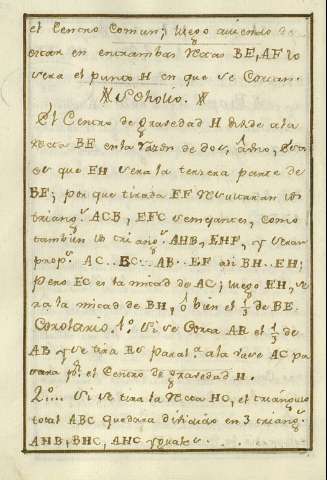 el Centro Comun; luego aviendo de
estar en entrambas rectas BE, AF lo
sera el punto H en que se Cortan.
Scholio.
El Centro de gravedad H divide a la
recta BE en la razon de dos, à uno, Esto
es que EH sera la tercera parte de
BE; por que tirada EF resultaran los
triang.s ACB, EFC semejantes, como
tambien los triang.s AHB, EHF, y seran
prop.s AC..BC..AB..EF asi BH..EH;
pero EC es la mitad de AC; luego EH, se
ra la mitad de BH, ó bien el 1/3 de BE.
Corolario. 1.º si se Corta AR el 1/3 de
AB y se tira RS paral.a a la vase AC pa
sara p.r el Centro de gravedad H.
2.º... si se tira la recta HC, el triángulo
total ABC quedara dividido en 3 triang.s
AHB, BHC, AHC yguales.